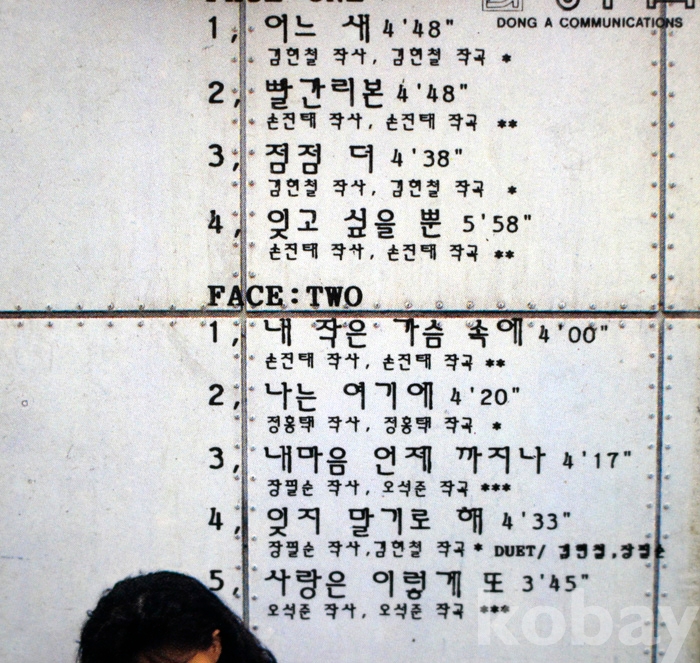 DONG A COMMUNICATIONS
1, 어느 새 4'48"
김현철 작사, 김현철 작곡 *
2, 빨간리본 4'48"
손진태 작사, 손진태 작곡 **
3, 점점 더 4'38"
김현철 작사, 김현철 작곡 *
4, 잊고 싶을 뿐 5'58"
손진태 작사, 손진태 작곡 **
FACE:TWO
1, 내 작은 가슴 속에 4'00"
손진태 작사, 손진태 작곡 **
2, 나는 여기에 4'20"
정홍택 작사, 정홍택 작곡 *
3, 내마음 언제 까지나 4'17"
장필순 작사, 오석준 작곡 ***
4, 잊지 말기로 해 4'33"
장필순 작사,김현철 작곡 * DUET/ 김현철,장필순
5, 사랑은 이렇게 또 3'45"
오석준 작사, 오석준 작곡 ***
kobay